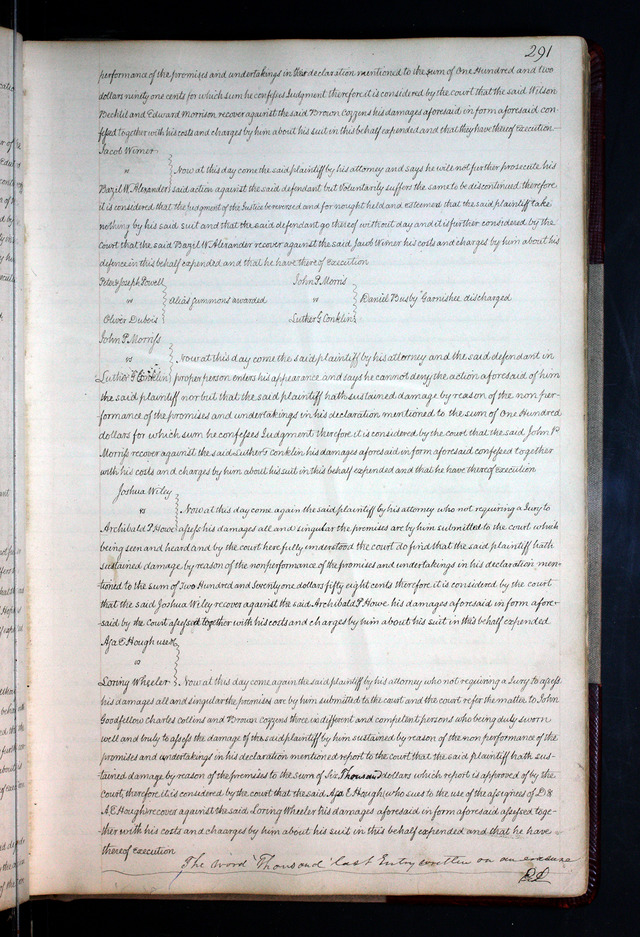 291
performance of the promises and undertakings in their declaration mentioned to the sum of One Hundred and two
dollars ninety one cents for which sum he confesses Judgment therefore it is considered by the court that the said Wilson
and Edward Morrison recover against the said Brown Cozzens his damages aforesaid in form aforesaid con-
fessed together with his costs and charges by him about his suit in this behalf expended and that they have thereof execution
Jacob Wimer
vs
Now at this day come the said plaintiff by his attorney and says he will not further prosecute his
Bazel W. Alexander said action against the said defendant but Voluntarily suffers the same to be discontinued therefore
it is considered that the Judgment of the Justice be reversed and for nought held and esteemed that the said plaintiff take
nothing by his said suit and that the said defendant go thereof without day and it is further considered by the
Court that the said Bazel W Alexander recover against the said Jacob Wimer his costs and charges by him about his
defence in this behalf expended and that he have thereof execution
Peter & Joseph Powell
vs
Oliver Dubois
Alias summons awarded
John P Morris
vs
Luther G Conklin
Daniel Busby Garnishee discharged
John P Morriss
vs
Now at this day come the said plaintiff by his attorney and the said defendant in
Luther G Conklin proper person enters his appearance and says he cannot deny the action aforesaid of him
the said plaintiff nor but that the said plaintiff hath sustained damage by reason of the non per-
formance of the promises and undertakings in his declaration mentioned to the sum of One Hundred
dollars for which sum he confesses Judgment therefore it is considered by the court that the said John P
Morriss recover against the said Luther G Conklin his damages aforesaid in form aforesaid confessed together
with his costs and charges by him about his suit in this behalf expended and that he have thereof execution
Joshua Wiley
vs
Now at this day come again the said plaintiff by his attorney who not requiring a Jury to
Archibald P. Howe assess his damages all and singular the premises are by him submitted to the court which
being seen and heard and by the court here fully understood the court do find that the said plaintiff hath
sustained damage by reason of the nonperformance of the promises and undertakings in his declaration men-
tioned to the sum of Two Hundred and Seventy one dollars fifty eight cents therefore it is considered by the court
that the said Joshua Wiley recover against the said Archibald P. Howe his damages aforesaid in form afore-
said by the Court assessed together with his costs and charges by him about his suit in this behalf expended
Asa E Hough use of
vs
Loring Wheeler Now at this day come again the said plaintiff by his attorney who not requiring a Jury to assess
his damages all and singular the premises are by him submitted to the court and the court refer the matter to John
Goodfellow charles collins and Brown cozzens three indifferent and competent persons who being duly sworn
well and truly to assess the damage of the said plaintiff by him sustained by reason of the non performance of the
promises and undertakings in his declaration mentioned report to the court that the said plaintiff hath sus-
tained damage by reason of the premises to the sum of Six Thousand dollars which report is approved of by the
court, therefore it is considered by the court that the said Asa E Hough who sues to the use of the assignees of D &
A E Hough recover against the said Loring Wheeler his damages aforesaid in form aforesaid assessed toge-
ther with his costs and chaarges by him about his suit in this behalf expended and that he have
thereof execution
The word Thousand last Entry written on an erasure